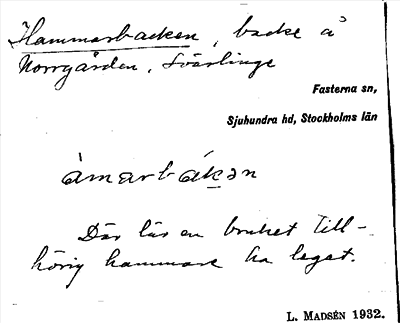 Hammarbacken, backe å
Norrgården, Svärlinge
Fasterna sn,
Sjuhundra hd, Stockholms län
àmarbákən
Där lär en bruket till-
hörig hammare ha legat.
L. MADSÉN 1932.